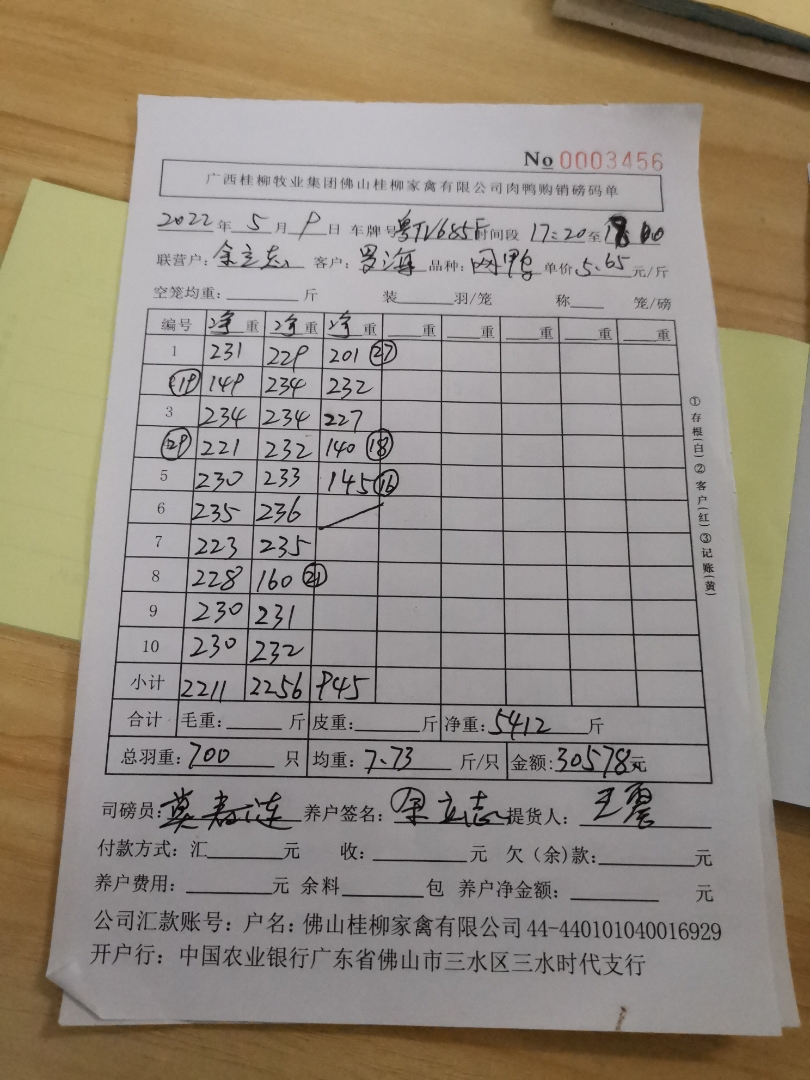 No 0003456
广西桂柳牧业集团佛山桂柳家禽有限公司肉鸭购销磅码单
2022年 5月 9日 车牌号 粤TV685F 时间段 17:20至18:00
联营户：余立志 客户：罗海 品种：网鸭 单价5.65元/斤
空笼均重：______斤 装______羽/笼 称____笼/磅
编号 净重 净重 净重 ___重 ___重 ___重 ___重
1 231 229 201 ㉗
⑲ 149 234 232
3 234 234 227
㉙ 221 232 140 ⑱
5 230 233 145 ⑯
6 235 236
7 223 235
8 228 160 ㉑
9 230 231
10 230 232
小计 2211 2256 945
合计 毛重：______斤 皮重：______斤 净重：5412斤
总羽重：700只 均重：7.73斤/只 金额：30578元
司磅员： 养户签名：余立志 提货人：王
付款方式：汇______元 收：______元 欠（余）款：______元
养户费用：______元 余料______包 养户净金额：______元
公司汇款账号：户名：佛山桂柳家禽有限公司44-440101040016929
开户行：中国农业银行广东省佛山市三水区三水时代支行
①存根(白)②客户(红)③记账(黄)